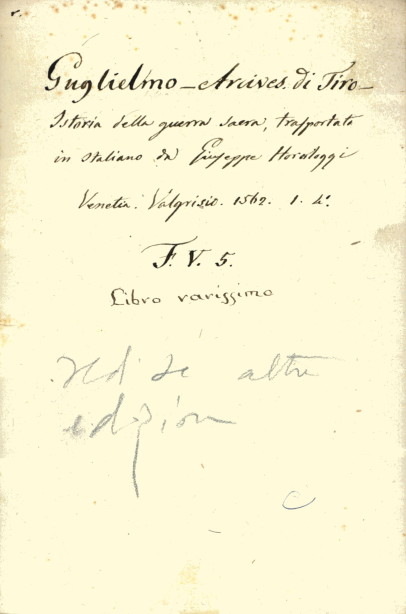 Guglielmo – Arcives. di Tiro –
Istoria della guerra sacra, trasportata
in italiano da Giuseppe Horologgi
Venetia. Valgrisio. 1562. 1. 4°.
F. V. 5.
Libro rarissimo
altre
edizion
C